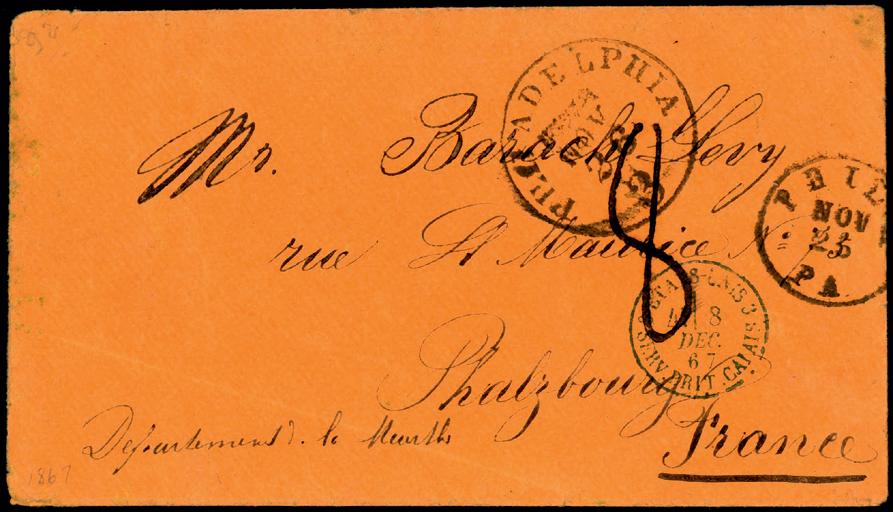 Mr. Barach Levy
rue St Maurice
Phalzbourg
France
Departement d. la Meurthe
1867
PHILADELPHIA
NOV
PHIL
NOV
23
PA
8
ETATS-UNIS
8
DEC.
67
SERV. BRIT. CALAIS